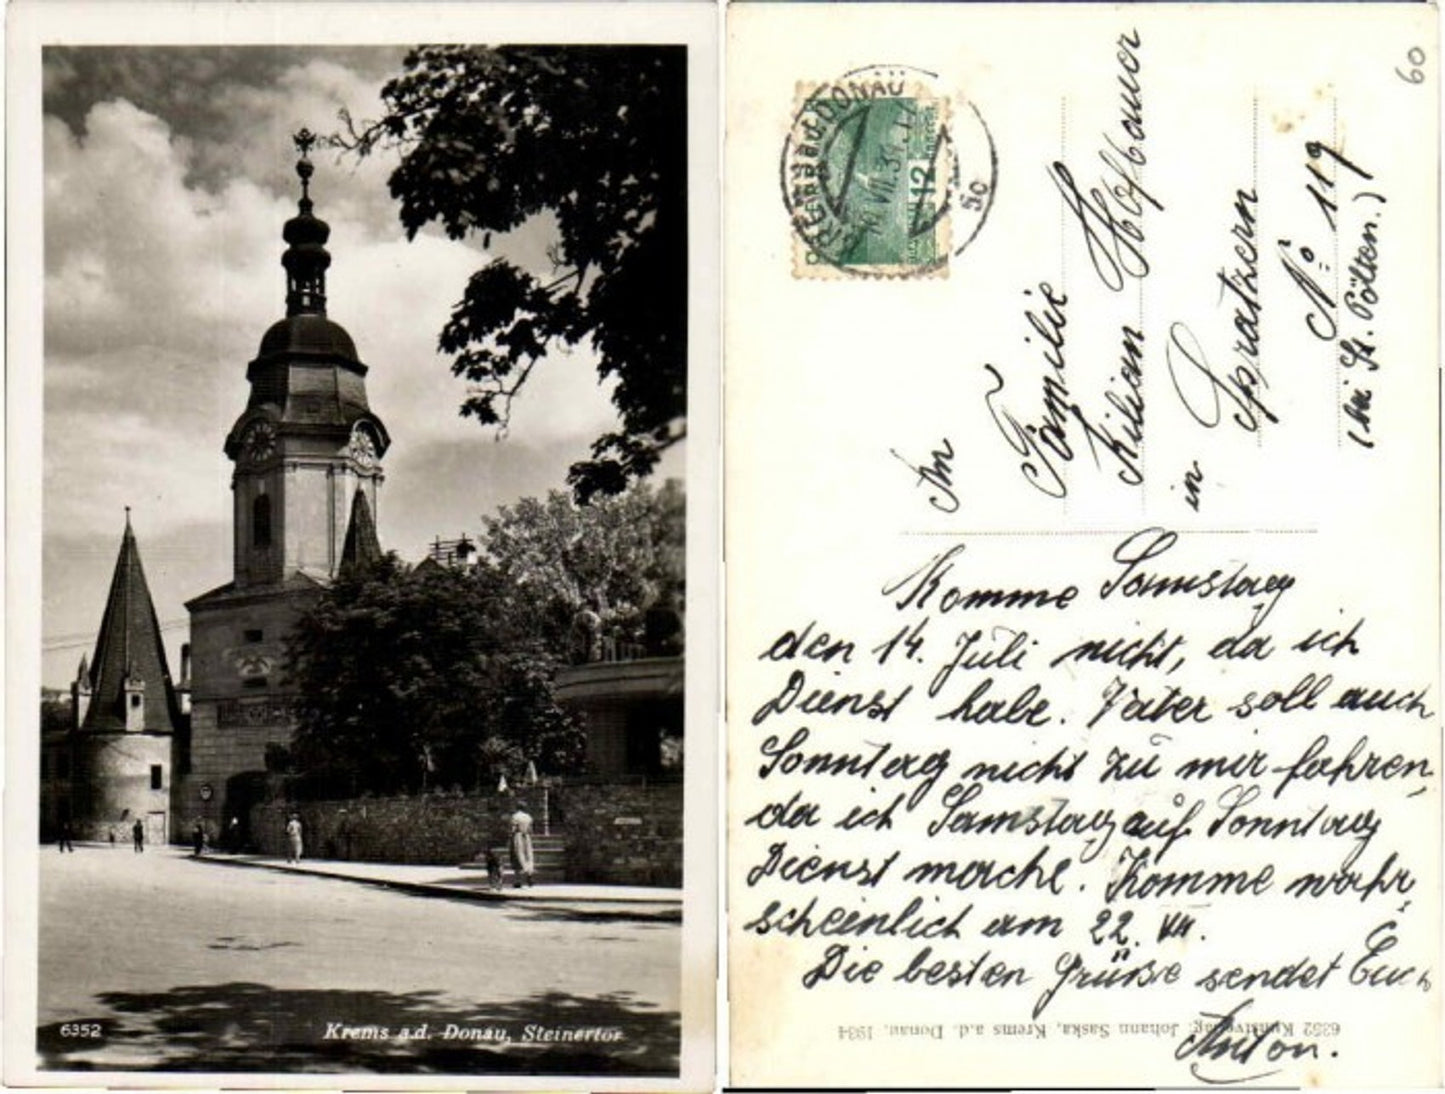 6352
Krems a.d. Donau, Steinertor
60
KREMS A.D. DONAU
10.VII.34
5c
12
An
Familie
Kilian Hofbauer
in Spratzern
No 119
(bei St. Pölten.)
Komme Samstag
den 14. Juli nicht, da ich
Dienst habe. Vater soll auch
Sonntag nicht zu mir fahren,
da ich Samstag auf Sonntag
Dienst mache. Komme wahr-
scheinlich am 22. VII.
Die besten Grüße sendet Euch
Anton.
6352 Kunstverlag Johann Saska, Krems a.d. Donau, 1934